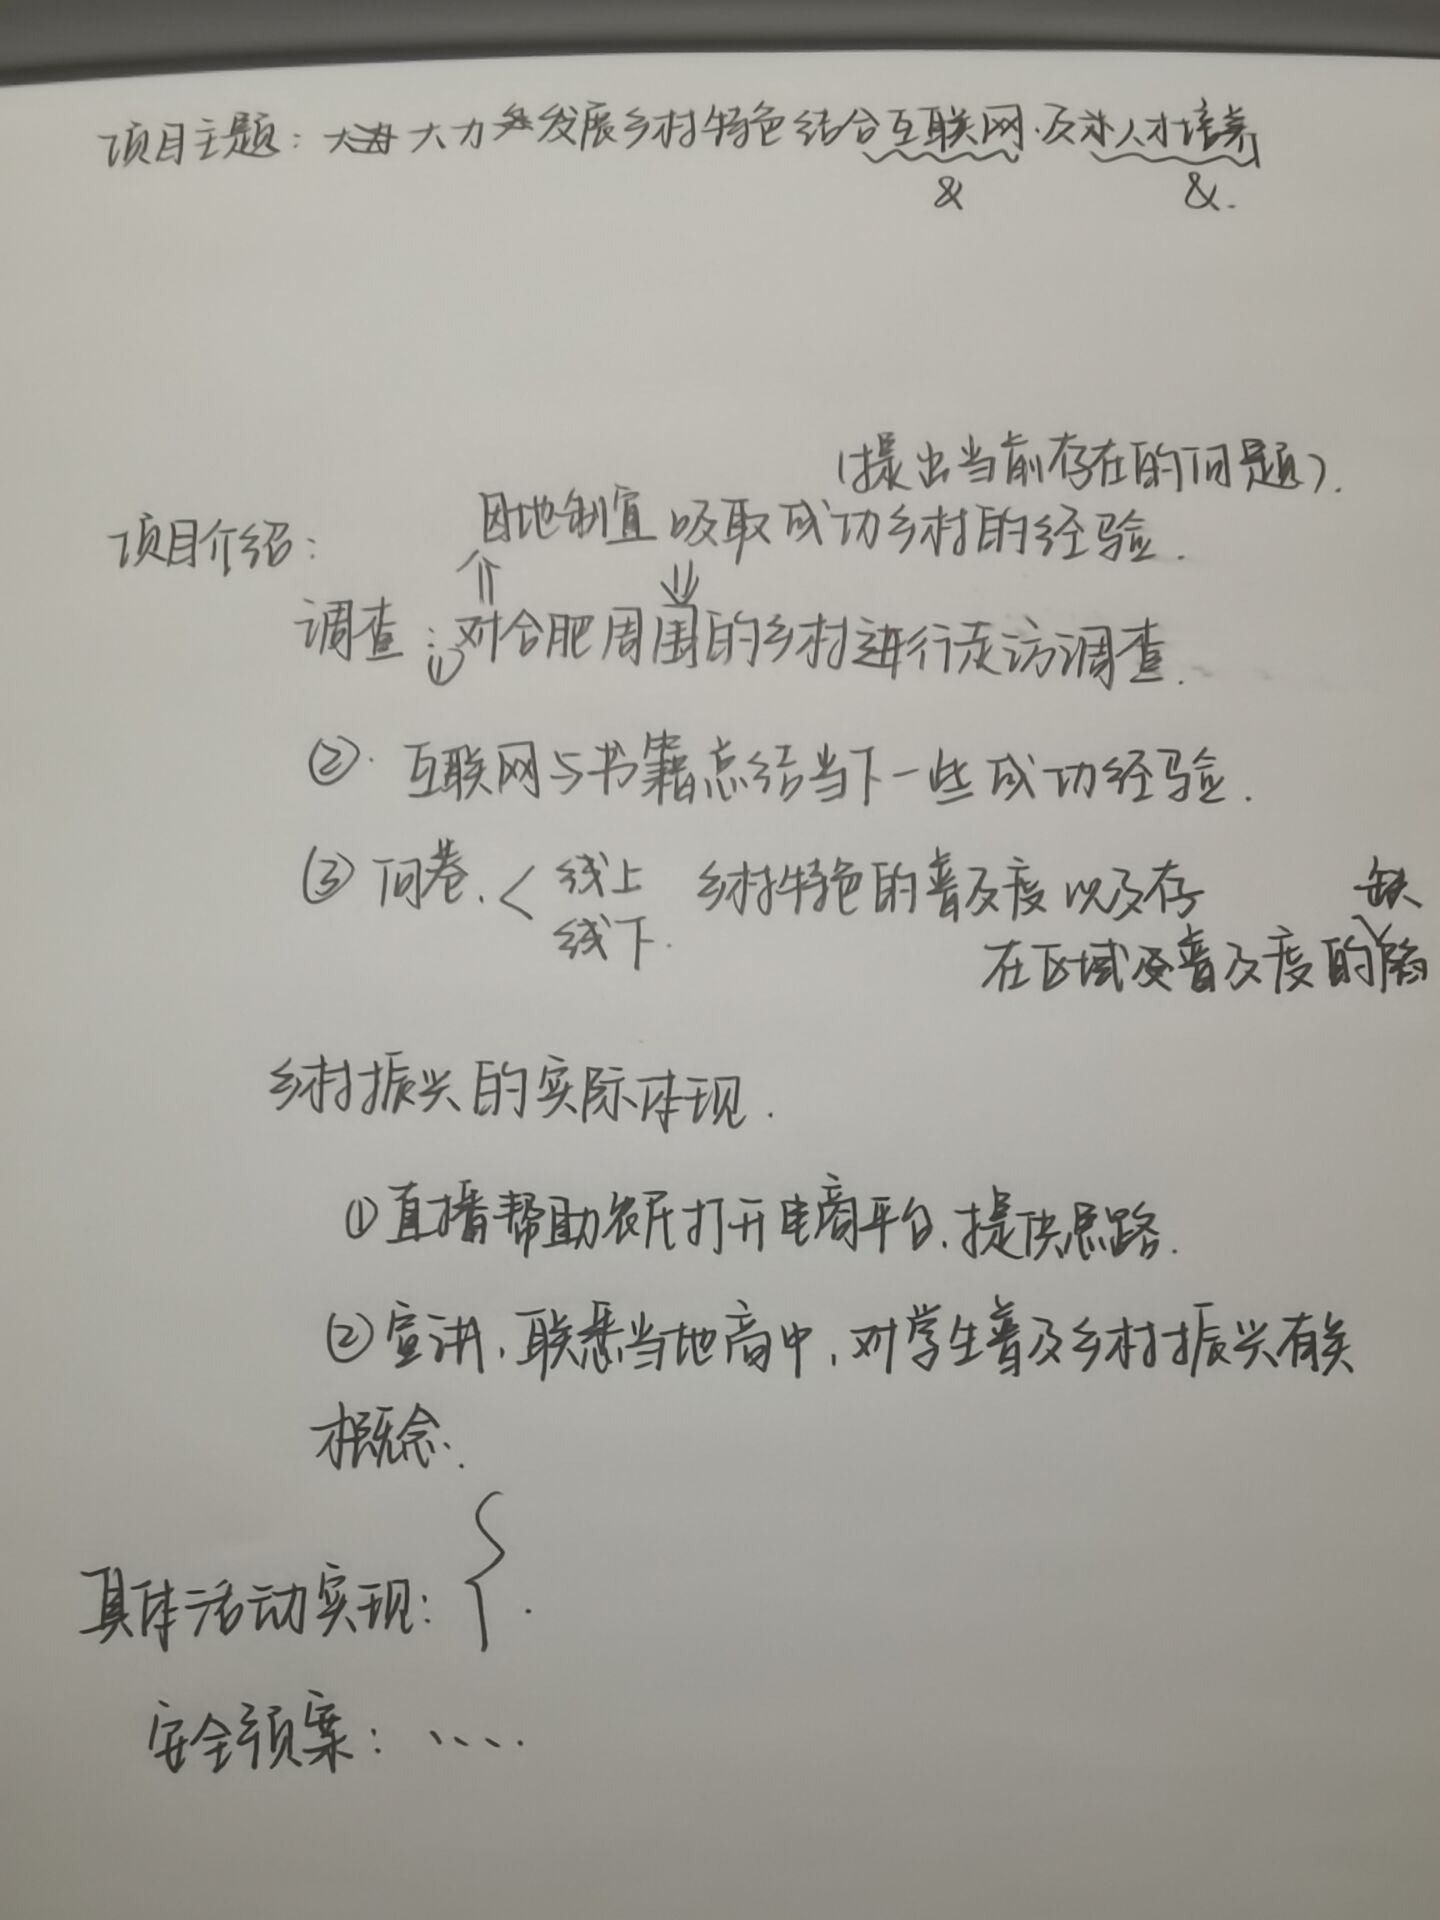 项目主题：大力发展乡村特色结合互联网.及人才培养
& &.
(提出当前存在的问题).
因地制宜 吸取成功乡村的经验.
项目介绍：
调查：①对合肥周围的乡村进行走访调查.
②. 互联网与书籍总结当下一些成功经验.
③ 问卷.< 线上 乡村特色的普及度以及存
线下. 在区域普及度的缺陷
乡村振兴的实际体现.
①直播帮助农民打开电商平台,提供思路.
②宣讲,联系当地高中,对学生普及乡村振兴有关
概念.
具体活动实现：{ .
安全预案：....